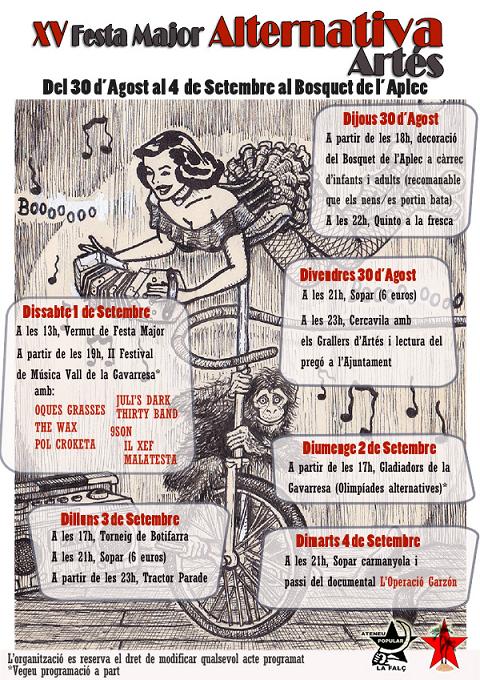 XV Festa Major Alternativa
Artés
Del 30 d'Agost al 4 de Setembre al Bosquet de l'Aplec
Dijous 30 d'Agost
A partir de les 18h, decoració
del Bosquet de l'Aplec a càrrec
d'infants i adults (recomanable
que els nens/es portin bata)
A les 22h, Quinto a la fresca
Booooooo
Divendres 30 d'Agost
A les 21h, Sopar (6 euros)
A les 23h, Cercavila amb
els Grallers d'Artés i lectura del
pregó a l'Ajuntament
Dissabte 1 de Setembre
A les 13h, Vermut de Festa Major
A partir de les 19h, II Festival
de Música Vall de la Gavarresa*
amb:
OQUES GRASSES
THE WAX
POL CROKETA
JULI'S DARK
THIRTY BAND
9SON
IL XEF
MALATESTA
Diumenge 2 de Setembre
A partir de les 17h, Gladiadors de la
Gavarresa (Olimpíades alternatives)*
Dilluns 3 de Setembre
A les 17h, Torneig de Botifarra
A les 21h, Sopar (6 euros)
A partir de les 23h, Tractor Parade
Dimarts 4 de Setembre
A les 21h, Sopar carmanyola i
passi del documental L'Operació Garzón
ATENEU
POPULAR
LA FALÇ
L'organització es reserva el dret de modificar qualsevol acte programat
*Vegeu programació a part